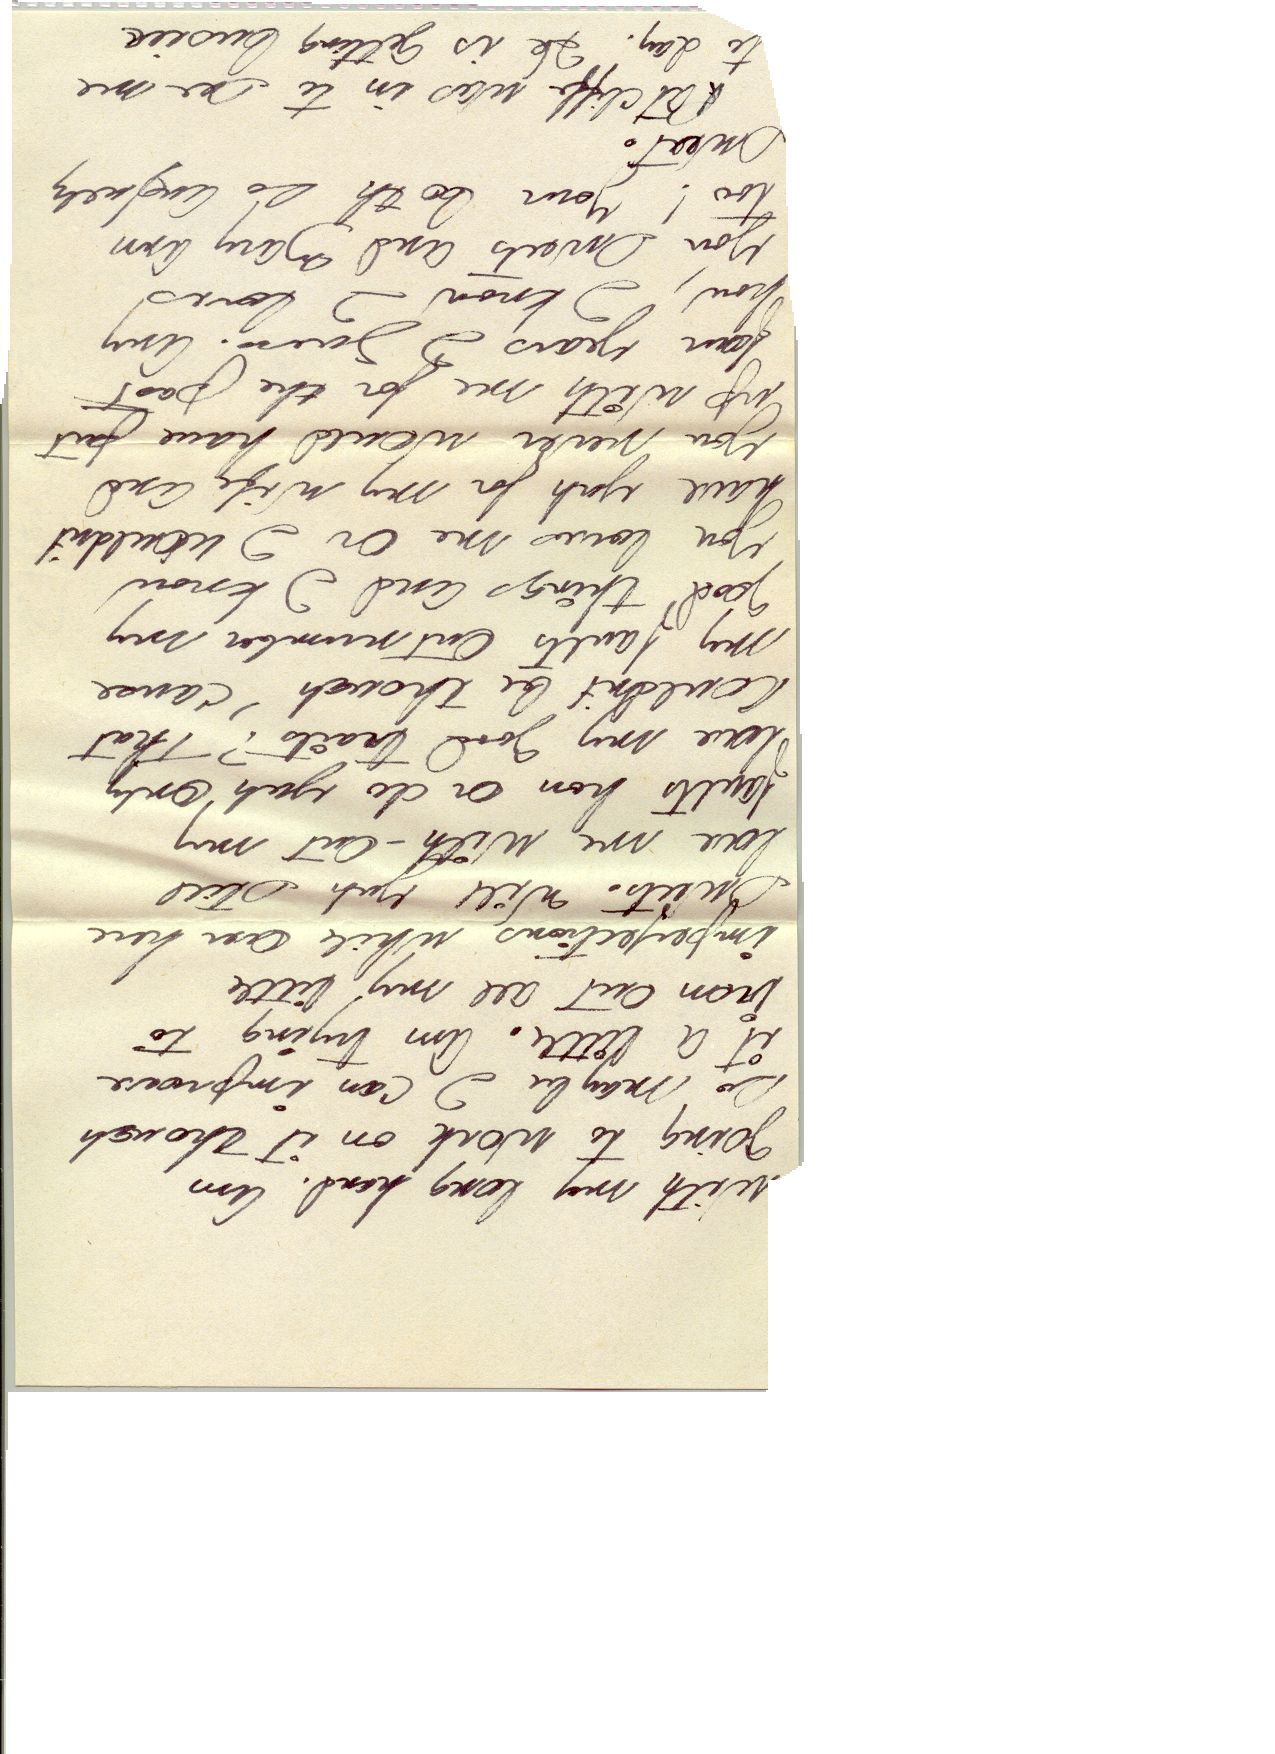 with my long hand. Am
going to work on it though
so maybe I can improve
it a little. Am trying to
iron out all my little
imperfections while over here
Sweets. Will yuh still
love me with-out my
faults hon or do yuh only
love my good traits? That
couldn't be though, 'cause
my faults out number my
good things and I know
you loves me or I wouldn't
have yuh for my wife and
you never would have put
up with me for the past
four years I guess. Any
how, I know I loves
you Sweets and Mary Ann
too! Your both so lovely
Sweat.
Ratcliffe was in to see me
to day. He is getting busier